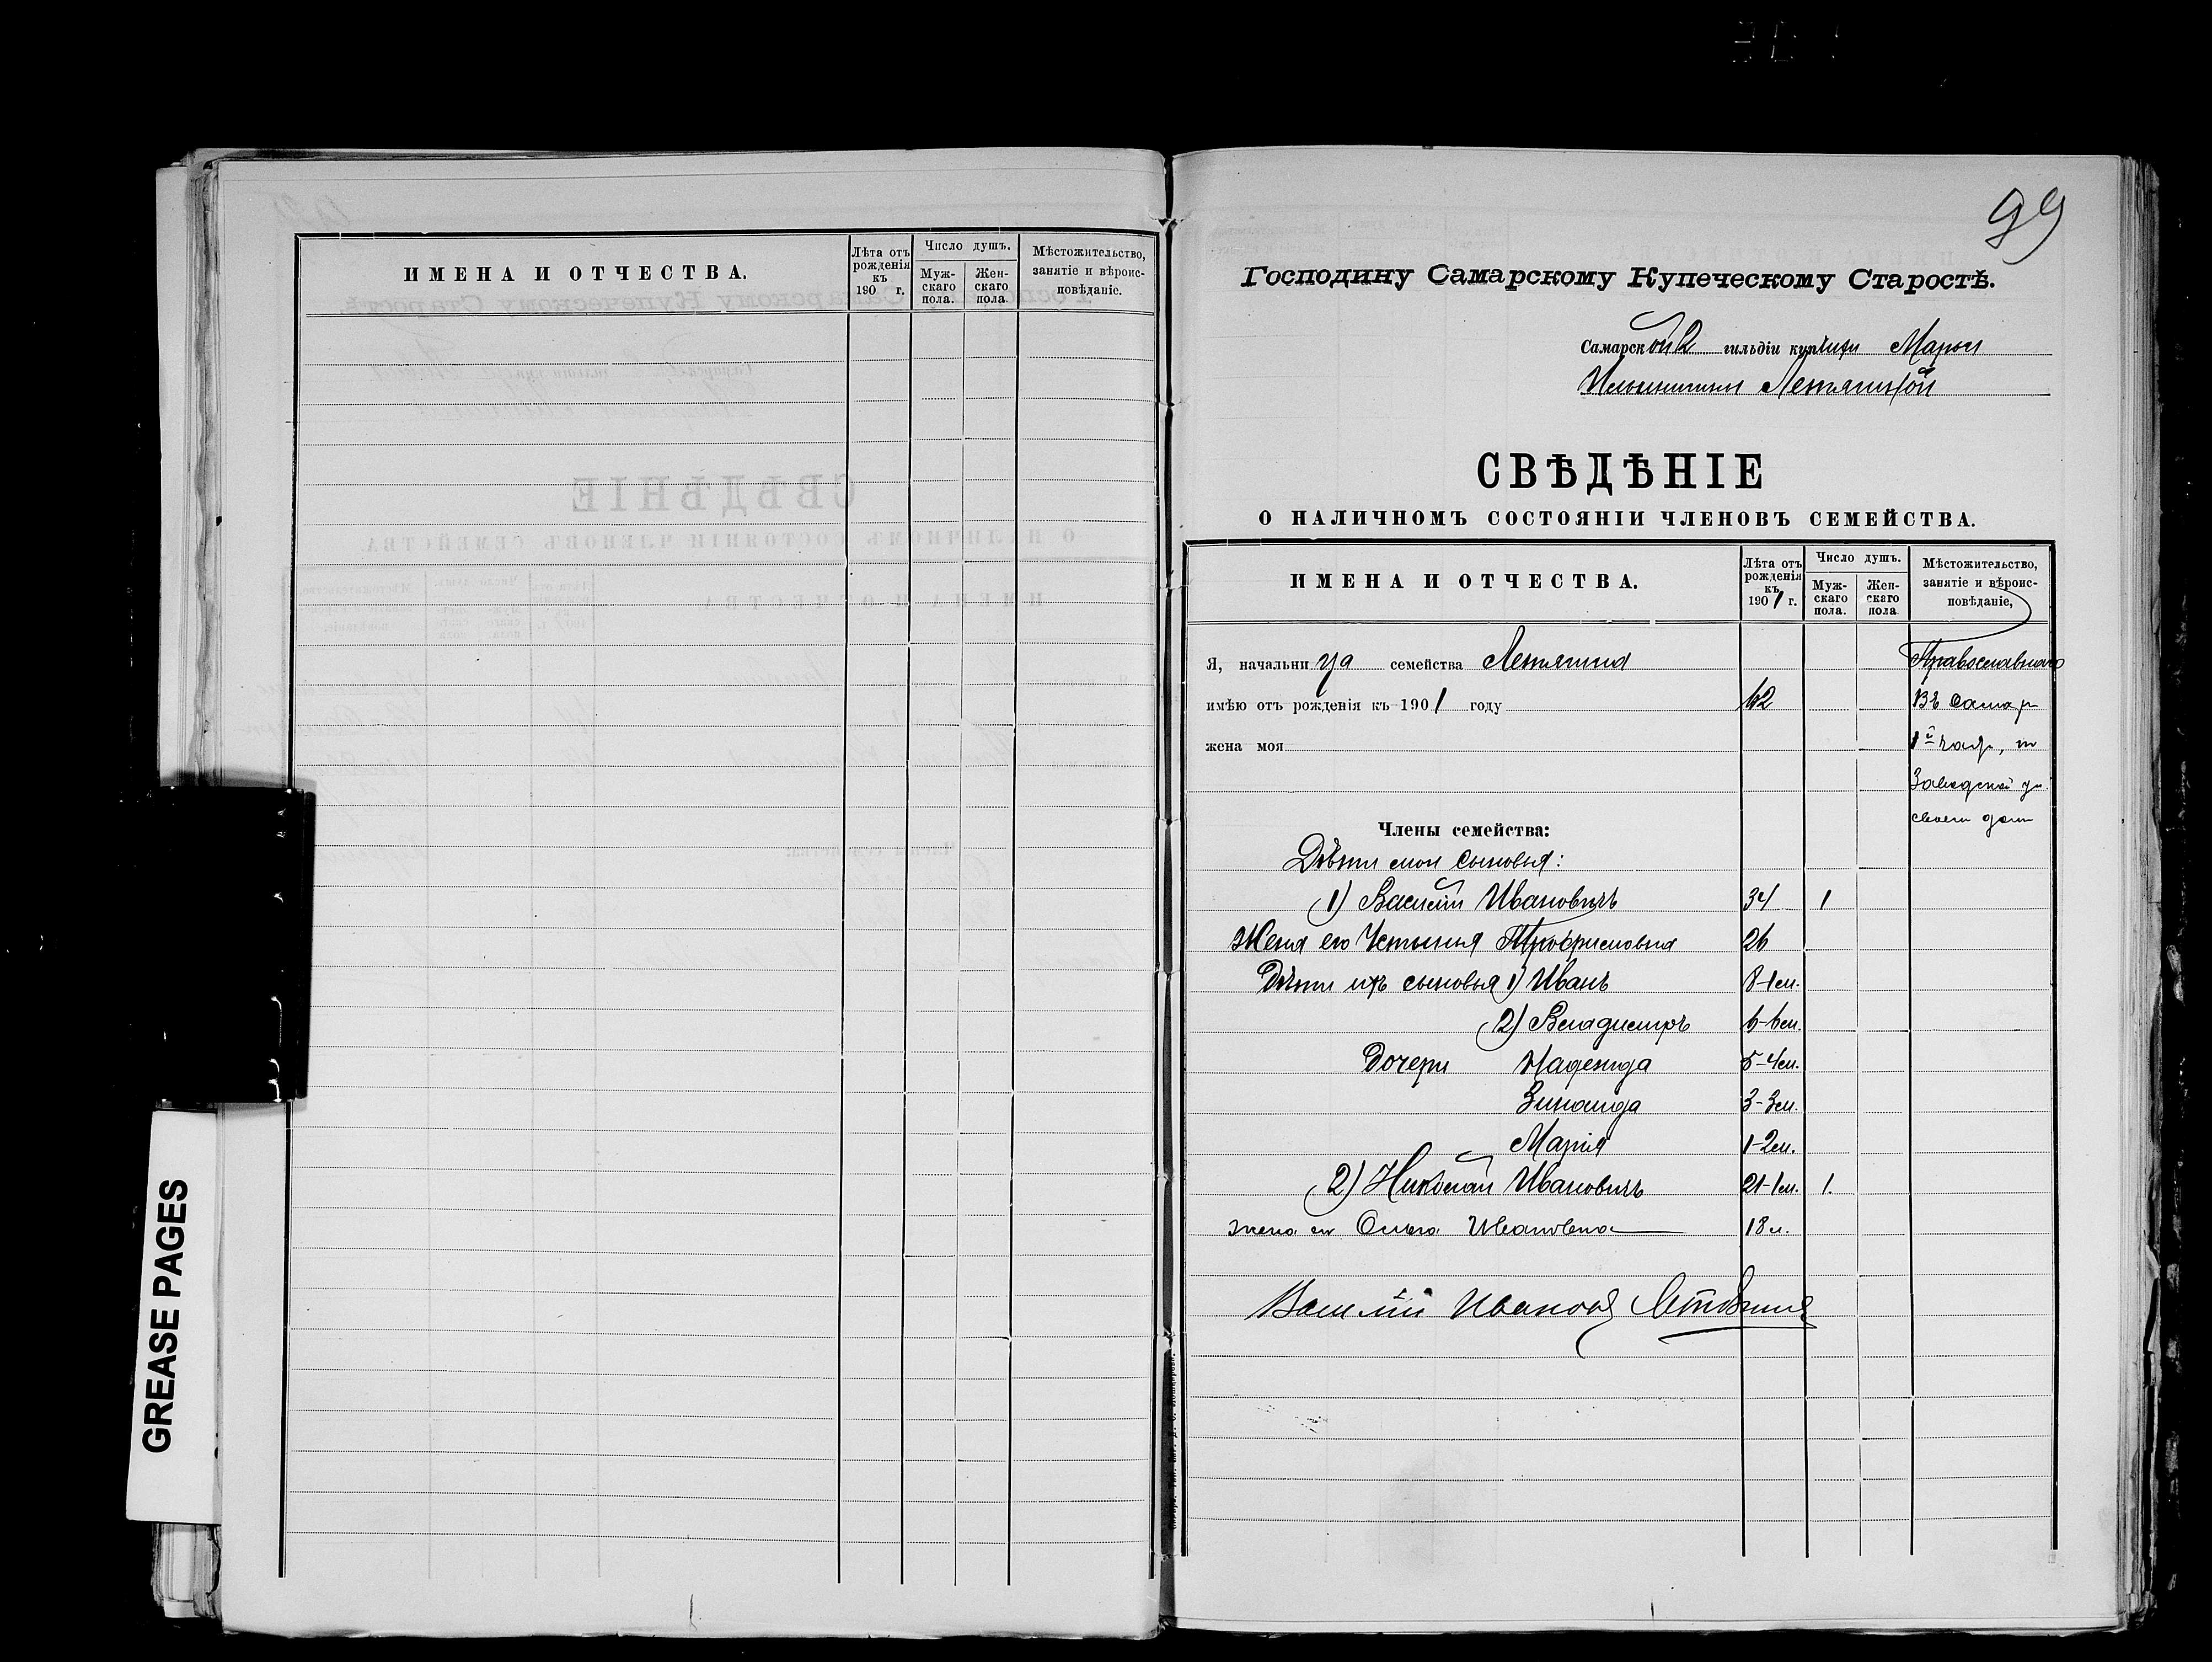 ИМЕНА И ОТЧЕСТВА.
Лѣта отъ рожденія къ 190 г.
Число душъ.
Муж-скаго пола.
Жен-скаго пола.
Мѣстожительство, занятіе и вѣроис-повѣданіе.
GREASE PAGES
99
Господину Самарскому Купеческому Старостѣ.
Самарской 2 гильдіи купчихи Марьи
Ильиничны Летягиной
СВѢДѢНІЕ
О НАЛИЧНОМЪ СОСТОЯНІИ ЧЛЕНОВЪ СЕМЕЙСТВА.
ИМЕНА И ОТЧЕСТВА.
Лѣта отъ рожденія къ 1901 г.
Число душъ.
Муж-скаго пола.
Жен-скаго пола
Мѣстожительство, занятіе и вѣроис-повѣданіе,
Я, начальница семейства Летягина Православнаго
имѣю отъ рожденія къ 1901 году 62 Въ Самар
жена моя 1й част, по
Заводской ул
своем дом
Члены семейства:
Дѣти мои сыновья:
1) Василій Ивановичъ 34 1
Жена его Устинья Трофимовна 26
Дѣти ихъ сыновья 1) Иванъ 8-1м.
2) Владиміръ 6-6м.
Дочери Надежда 5-4м.
Зинаида 3-3м.
Марія 1-2м.
2) Николай Ивановичъ 21-1м. 1.
жена ег Ольга Ивановна 18 л.
Василій Ивановъ Летягинъ